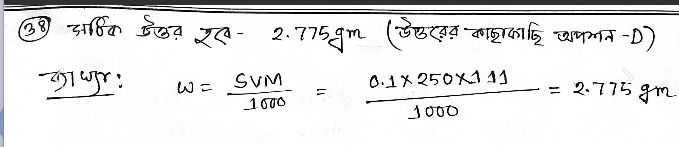 (38) সঠিক উত্তর হবে - 2.775gm (উত্তরের কাছাকাছি অপশন -D)
ব্যাখ্যা: W = SVM/1000 = 0.1×250×111/1000 = 2.775 gm